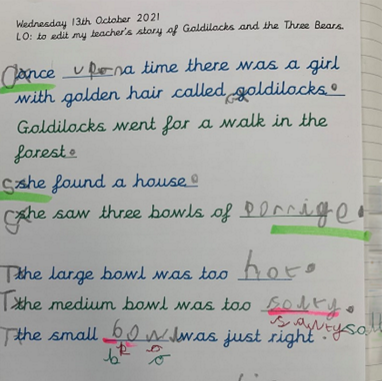 Wednesday 13th October 2021
LO: to edit my teacher's story of Goldilocks and the Three Bears.
Once upon a time there was a girl
with golden hair called Goldilocks.
Goldilocks went for a walk in the
forest.
She found a house.
She saw three bowls of porrige.
The large bowl was too hot.
The medium bowl was too solty.
salty sal
The small bowl was just right.
b o